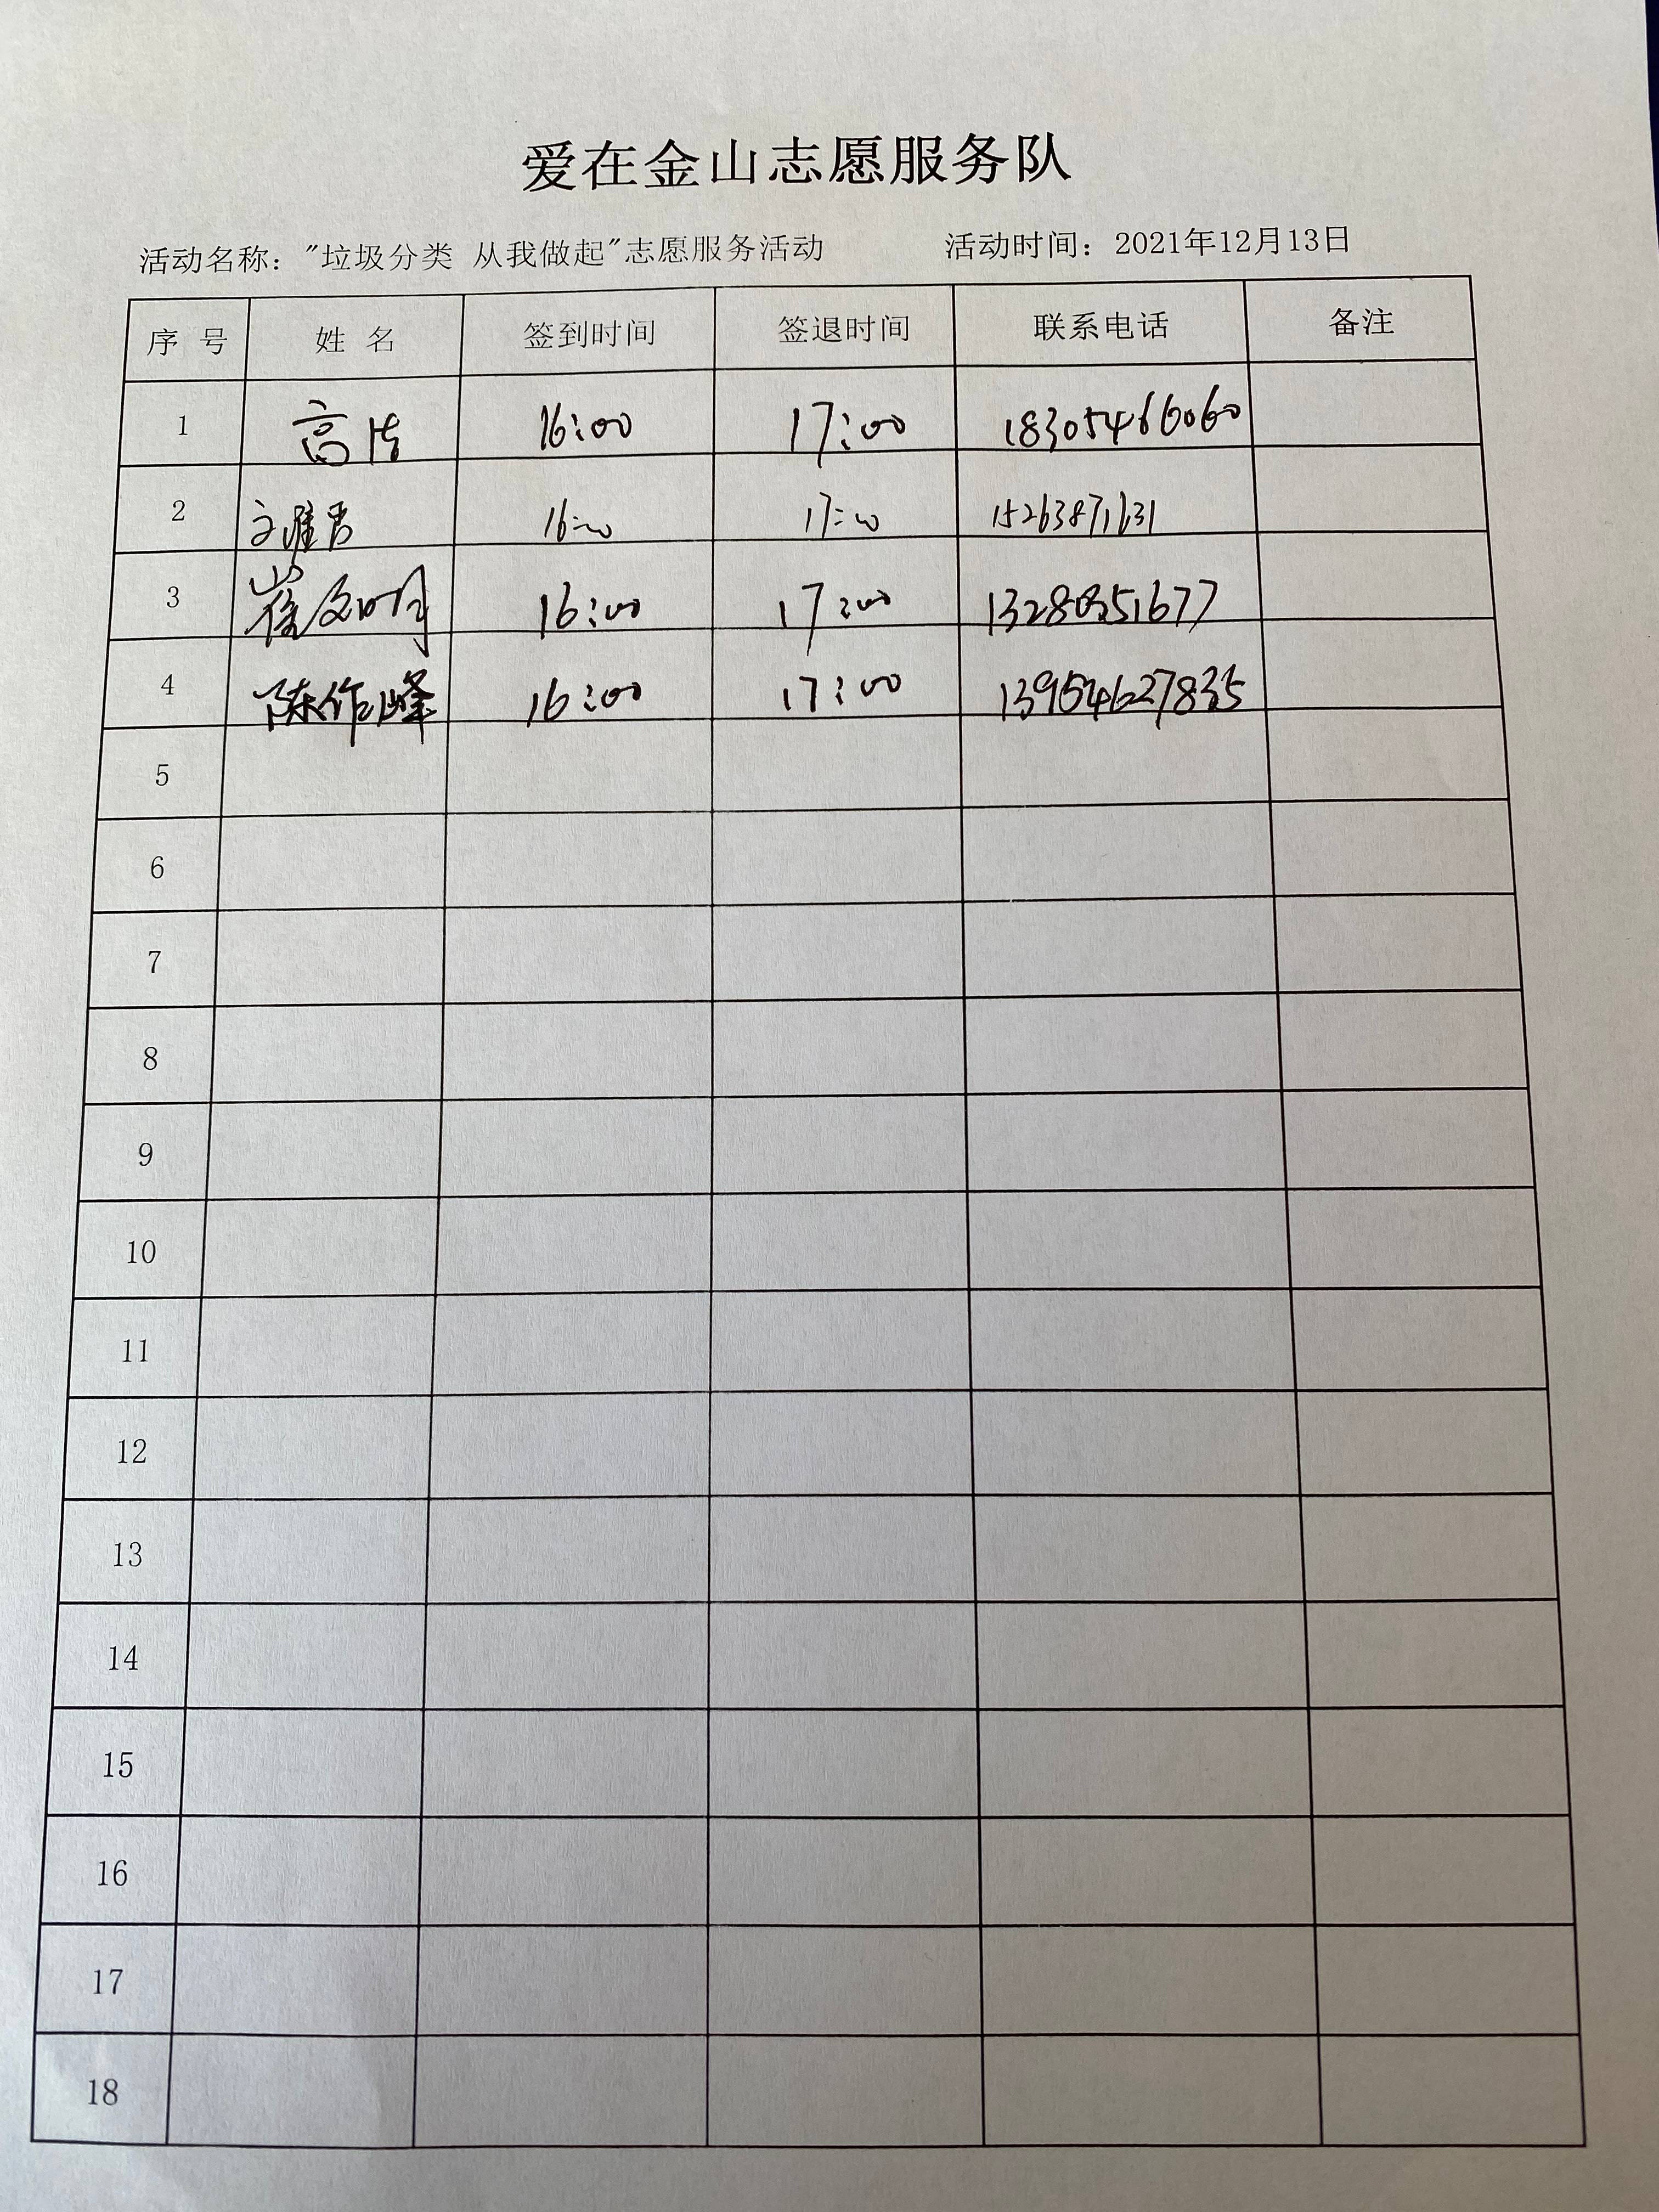 爱在金山志愿服务队
活动名称："垃圾分类 从我做起"志愿服务活动 活动时间：2021年12月13日
序号 姓名 签到时间 签退时间 联系电话 备注
1 高 16:00 17:00 18305466060
2 16:00 17:00 15263871631
3 崔文明 16:00 17:00 13280351677
4 陈作峰 16:00 17:00 13954627835
5
6
7
8
9
10
11
12
13
14
15
16
17
18